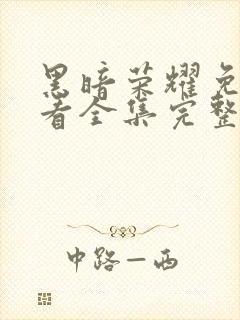 黑暗荣耀免
看全集完整
中路—西